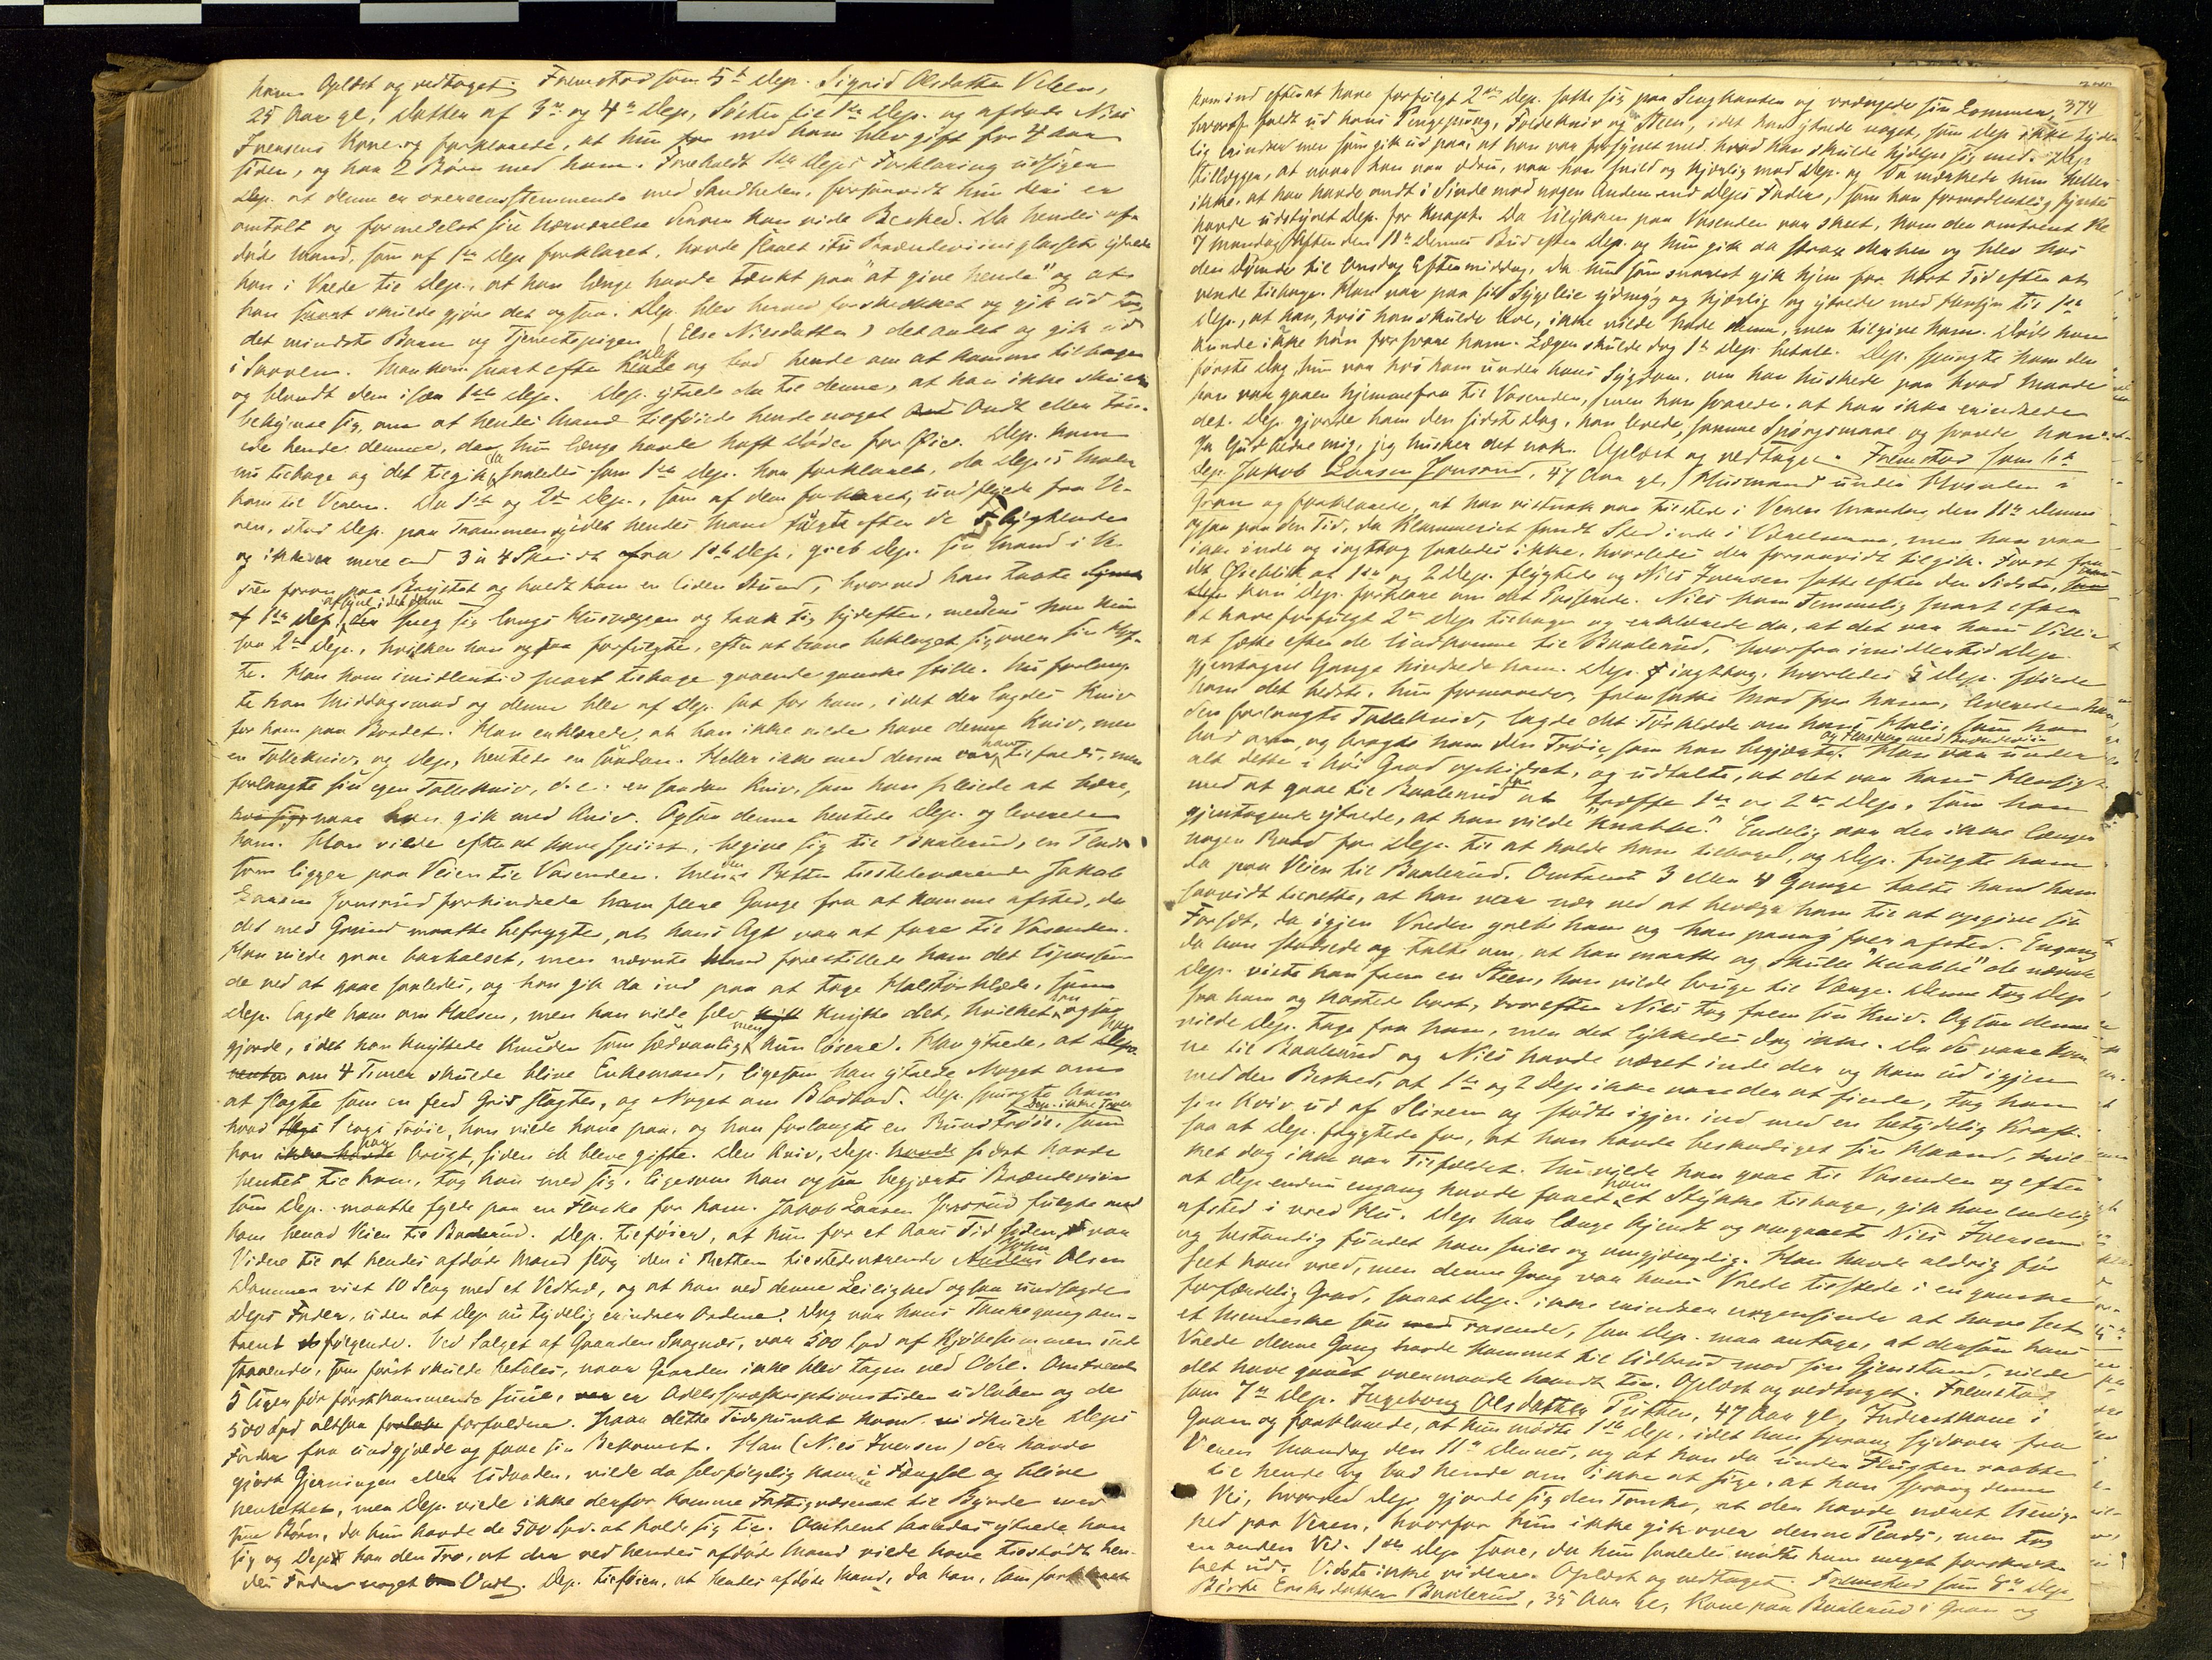 ham. Oplæst og vedtaget. Fremstod som 5te Dep. Sigrid Olsdatter Velen,
25 Aar gl., Datter af 3die og 4de Dep., Søster til 1ste Dep. og afdøde Niels
Iversens Kone og forklarede, at hun med ham blev gift for 4 Aar
siden, og har 2 Børn med ham. Foreholdt 1ste Dep's Forklaring udsiger
Dep. at denne er overensstemmende med Sandheden, forsaavidt hun deri er
omtalt og formedelst sin Nærværelse derom kan vide Besked. Da hendes af-
døde Mand, som af 1ste Dep. forklaret, havde slaaet itu Brændeviinsglasset, ytrede
han i Vrede til Dep., at han længe havde tænkt paa "at give hende" og at
han snart skulde gjøre det ogsaa. Dep. blev herved forskrækket og gik ud
det mindste Barn og Tjenestepigen (Else Nilsdatter) det andet og gik ud
i Svalen. Han kom snart efter Dep og bad hende om at komme tilbage
og blandt dem især 1ste Dep. Dep. ytrede da til denne, at han ikke skulde
bekymre sig, om at hendes Mand tilføiede hende noget Ondt eller
ede hende derned, da hun længe havde haft Døden for Øie. Dep. kom
nu tilbage og det tilgik da saaledes som 1ste Dep. har forklaret, da Dep's Mand
kom til Veien. Da 1ste og 2den Dep., som af dem forklaret, undflyede fra Ve-
ien, stod Dep. paa Trammen og idet hendes Mand fulgte efter de Flygtende
og ikke var mere end 3 à 4 Skridt fra 1ste Dep., greb Dep. sin Mand i
foran paa Brystet og holdt ham en liden Stund, hvorved han tabte
1ste Dep. af Syne, idet denne sneg sig langs Husvæggen og trak sig sydefter, medens han kun
saa 2den Dep., hvilken han ogsaa forfulgte, efter at have beklaget sig over sin Hof-
te. Han kom imidlertid snart tilbage gaaende ganske stille. Nu forlang-
te han Middagsmad og denne blev af Dep. sat for ham, idet der lagdes Kniv
for ham paa Bordet. Han erklærede, at han ikke vilde have denne Kniv, men
en Tollekniv, og Dep. hentede en saadan. Heller ikke med denne var han tilfreds, men
forlangte sin egen Tollekniv, d.e: en saadan Kniv, som han pleiede at bære,
naar han gik med Kniv. Ogsaa denne hentede Dep. og leverede
ham. Han vilde efter at have spiist, begive sig til Baalerud, en Plads
som ligger paa Veien til Vasenden. Men den i Retten tilstedeværende Jakob
Larsen Jonsrud forhindrede ham flere Gange fra at komme afsted, da
det med Grund maatte befrygtes, at hans Agt var at fare til Vasenden.
Han vilde gaae barhalset, men nævnte Mand forestillede ham det upassen-
de ved at gaae saaledes, og han gik da ind paa at tage Halstørklæde, som
Dep. lagde ham om Halsen, men han vilde selv knytte det, hvilket han ogsaa
gjorde, idet han knyttede Knuden som sædvanligt men kun løsere. Han ytrede, at hans
om 4 Timer skulde blive Enkemand, ligesom han ytrede Noget om
at slagte som en feed Griis slagtes, og Noget om Blodbad. Dep. spurgte ham
hvad Slags Trøie, han vilde have paa, og han forlangte en Bundtrøie, som Dep. ikke troer
han har brugt, siden de bleve gifte. Den Kniv, Dep. sidst havde
hentet til ham, tog han med sig, ligesom han ogsaa begjærte Brændeviin
som Dep. maatte fylde paa en Flaske for ham. Jakob Larsen Jonsrud fulgte med
ham henad Veien til Baalerud. Dep. tilføier, at hun for et Aars Tid siden var
Vidne til at hendes afdøde Mand slog den i Retten tilstedeværende John Olsen
Dammen vist 10 Slag med et Vedtræ, og at han ved denne Leilighed ogsaa undsagde
Dep's Fader, uden at Dep. nu tydelig erindrer Ordene. Dog var hans Tankegang om-
trent følgende. Ved Salget af Gaarden Sagnæs, var 500 Spd af Kjøbesummen inde
staaende, som først skulde betales, naar Gaarden ikke blev tagen ved Odel. Omtrent
5 Uger før førstkommende Juul, er Odelspræskriptionstiden udløben og de
500 Spd altsaa forfaldne. Naar dette Tidspunkt kom, skulde Dep's
Fader faa undgjælde og faae sin Bekomst. Han (Niels Iversen) der havde
gjort Gjerningen eller Udaaden, vilde da selvfølgelig komme i Fængsel og blive
henrettet, men Dep. vilde ikke derfor komme Fattigvæsenet til Byrde med
sine Børn, da hun havde de 500 Spd. at holde sig til. Omtrent saaledes ytrede han
sig og Dep. har den Tro, at der ved hendes afdøde Mand vilde have tilstødt hen-
des Fader noget Ondt. Dep. tilføier, at hendes afdøde Mand, da han, som forklaret
374
kom ind efter at have forfulgt 2den Dep. satte sig paa Sengkanten og vrængede sin Lomme,
hvoraf faldt ud hans Pengepung, Foldekniv og Steen, idet han ytrede noget, som Dep ikke tyde-
lig erindrer men som gik ud paa, at han var forsynet med, hvad han skulde hjelpe sig med. Dep
tillægger, at naar han var ædru, var han snild og kjærlig mod Dep. og da mærkede hun heller
ikke, at han havde ondt i Sinde mod nogen Anden end Dep's Fader, som han formodentlig syntes
havde udstyret Dep. for knapt. Da Ulykken paa Vasenden var skeet, kom der omtrent Kl
7 Mandag Aften den 11te dennes Bud efter Dep. og hun gik da strax derhen og blev hos
den Døende til Onsdag Eftermiddag, da hun som snarest gik hjem for kort Tid efter at
vende tilbage. Han var paa sit Sygeleie ydmyg og kjærlig og ytrede med Hensyn til 1ste
Dep., at han, hvis han skulde leve, ikke vilde hade denne, men tilgive ham. Døde han
kunde ikke han forsvare ham. Lægen skulde dog 1ste Dep. betale. Dep. spurgte ham den
første Dag, hun var hos ham under hans Sygdom, om han huskede paa hvad Maade
han var gaaen hjemmefra til Vasenden, men han svarede, at han ikke erindrede
det. Dep. gjorde ham den sidste Dag, han levede, samme Spørgsmaal og svarede han
Ja Gud bedre mig, jeg husker det nok. Oplæst og vedtaget. Fremstod som 6te
Dep. Jakob Larsen Jonsrud, 47 Aar gl., Husmand under Hvinden i
Gran og forklarede, at han vistnok var tilstede i Velen Mandag den 11te dennes
ogsaa paa den Tid, da Klammeriet fandt Sted inde i Værelserne, men han var
ikke inde og iagttog saaledes ikke, hvorledes det forsaavidt tilgik. Først fra
det Øieblik at 1ste og 2 Dep. flygtede og Niels Iversen satte efter den Sidste,
kan Dep. forklare om det Passerede. Niels kom temmelig snart efter
at have forfulgt 2den Dep. tilbage og erklærede da, at det var hans Villie
at sætte efter de Undkomne til Baalerud, hvorfra imidlertid Dep.
gjentagne Gange hindrede ham. Dep. iagttog, hvorledes 5 Dep. føiede
ham det bedste, hun formaaede, fremsatte Mad for ham, leverede ham
den forlangte Tollekniv, lagde det Tørklæde om hans Hals, som han
bad om, og bragte ham den Trøie, som han begjærte og Flasken med Brændeviin. Han var under
alt dette i høi Grad ophidset, og udtalte, at det var hans Hensigt
med at gaae til Baalerud, at træffe 1ste og 2den Dep., som han
gjentagende ytrede, at han vilde "knabbe." Endelig var der ikke længer
nogen Raad for Dep. til at holde ham tilbage, og Dep. fulgte ham
da paa Veien til Baalerud. Omtrent 3 eller 4 Gange talte han ham
saavidt tilrette, at han var nær ved at bevæge ham til at opgive sit
Forsæt, da igjen Vreden greb ham og han paany foer afsted. Engang
da han standsede og talte om, at han maatte og skulde "knabbe" de nævnte
Dep. viste han frem en Steen, han vilde bruge til Vaage. Denne tog Dep
fra ham og kastede bort, hvorefter Niels tog frem sin Kniv. Ogsaa denne
vilde Dep. tage fra ham, men det lykkedes dog ikke. Da de vare kom-
ne til Baalerud og Niels havde været inde der og kom ud igjen
med den Besked, at 1ste og 2 Dep. ikke vare der at finde, tog han
sin Kniv ud af Sliren og stødte igjen ind med en betydelig Kraft
saa at Dep. frygtede for, at han havde beskadiget sin Haand, hvil-
ket dog ikke var Tilfældet. Nu vilde han gaae til Vasenden og efter
at Dep endnu engang havde faaet ham et Stykke tilbage, gik han endelig
afsted i vred Hu. Dep. har længe kjendt og omgaaets Niels Iversen
og bestandig fundet ham snild og omgjængelig. Han havde aldrig før
seet ham vred, men denne Gang var hans Vrede tilstede i en ganske
forfærdelig Grad, saa at Dep. ikke erindrer nogensinde at have seet
et Menneske saa rasende, saa Dep. maa antage, at dersom hans
Vrede denne Gang havde kommet til Udbrud mod sin Gjenstand, vilde
det have gaaet overmaade haardt til. Oplæst og vedtaget. Fremstod
som 7de Dep. Ingeborg Olsdatter Putten, 47 Aar gl., Inderstkone i
Gran og forklarede, at hun mødte 1ste Dep., idet han sprang sydover fra
Velen Mandag den 11te dennes, og at han da under Flugten raabte
til hende og bad hende om ikke at sige, at han sprang denne
Vei, hvorved Dep. gjorde sig den Tanke, at der havde været Ulempe
ned paa Velen, hvorfor hun ikke gik over denne Plads, men tog
en anden Vei. 1ste Dep. saae, da hun saaledes mødte ham meget forskræk-
ket ud. Vidste ikke videre. Oplæst og vedtaget. Fremstod som 8de Dep
Birthe Eriksdatter Baalerud, 35 Aar gl., Kone paa Baalerud i Gran og